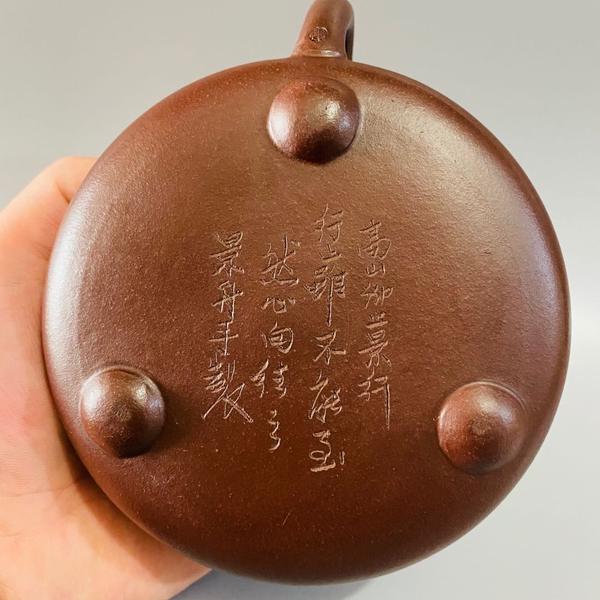 高山仰止景行
行止雖不能至
然心向往之
景舟手製